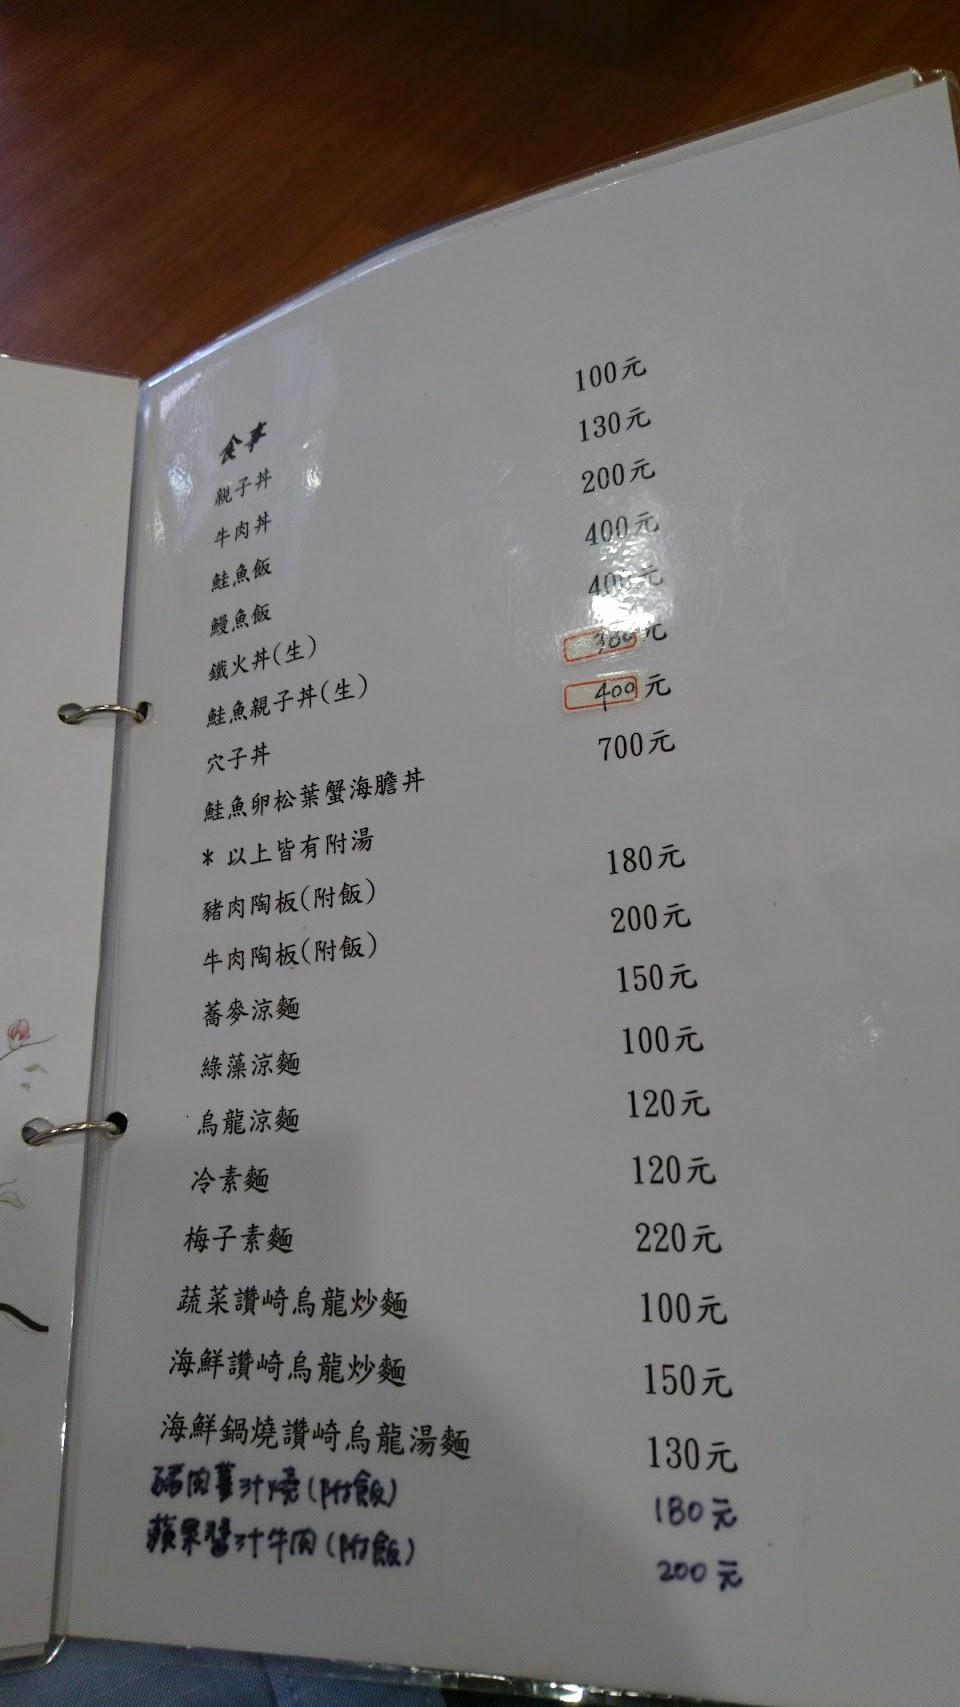 食事
親子丼 100元
牛肉丼 130元
鮭魚飯 200元
鰻魚飯 400元
鐵火丼(生) 400元
鮭魚親子丼(生) 380元
穴子丼 400元
鮭魚卵松葉蟹海膽丼 700元
* 以上皆有附湯
豬肉陶板(附飯) 180元
牛肉陶板(附飯) 200元
蕎麥涼麵 150元
綠藻涼麵 100元
烏龍涼麵 120元
冷素麵 120元
梅子素麵 220元
蔬菜讚崎烏龍炒麵 100元
海鮮讚崎烏龍炒麵 150元
海鮮鍋燒讚崎烏龍湯麵 130元
豬肉薑汁燒(附飯) 180元
蘋果醬汁牛肉(附飯) 200元